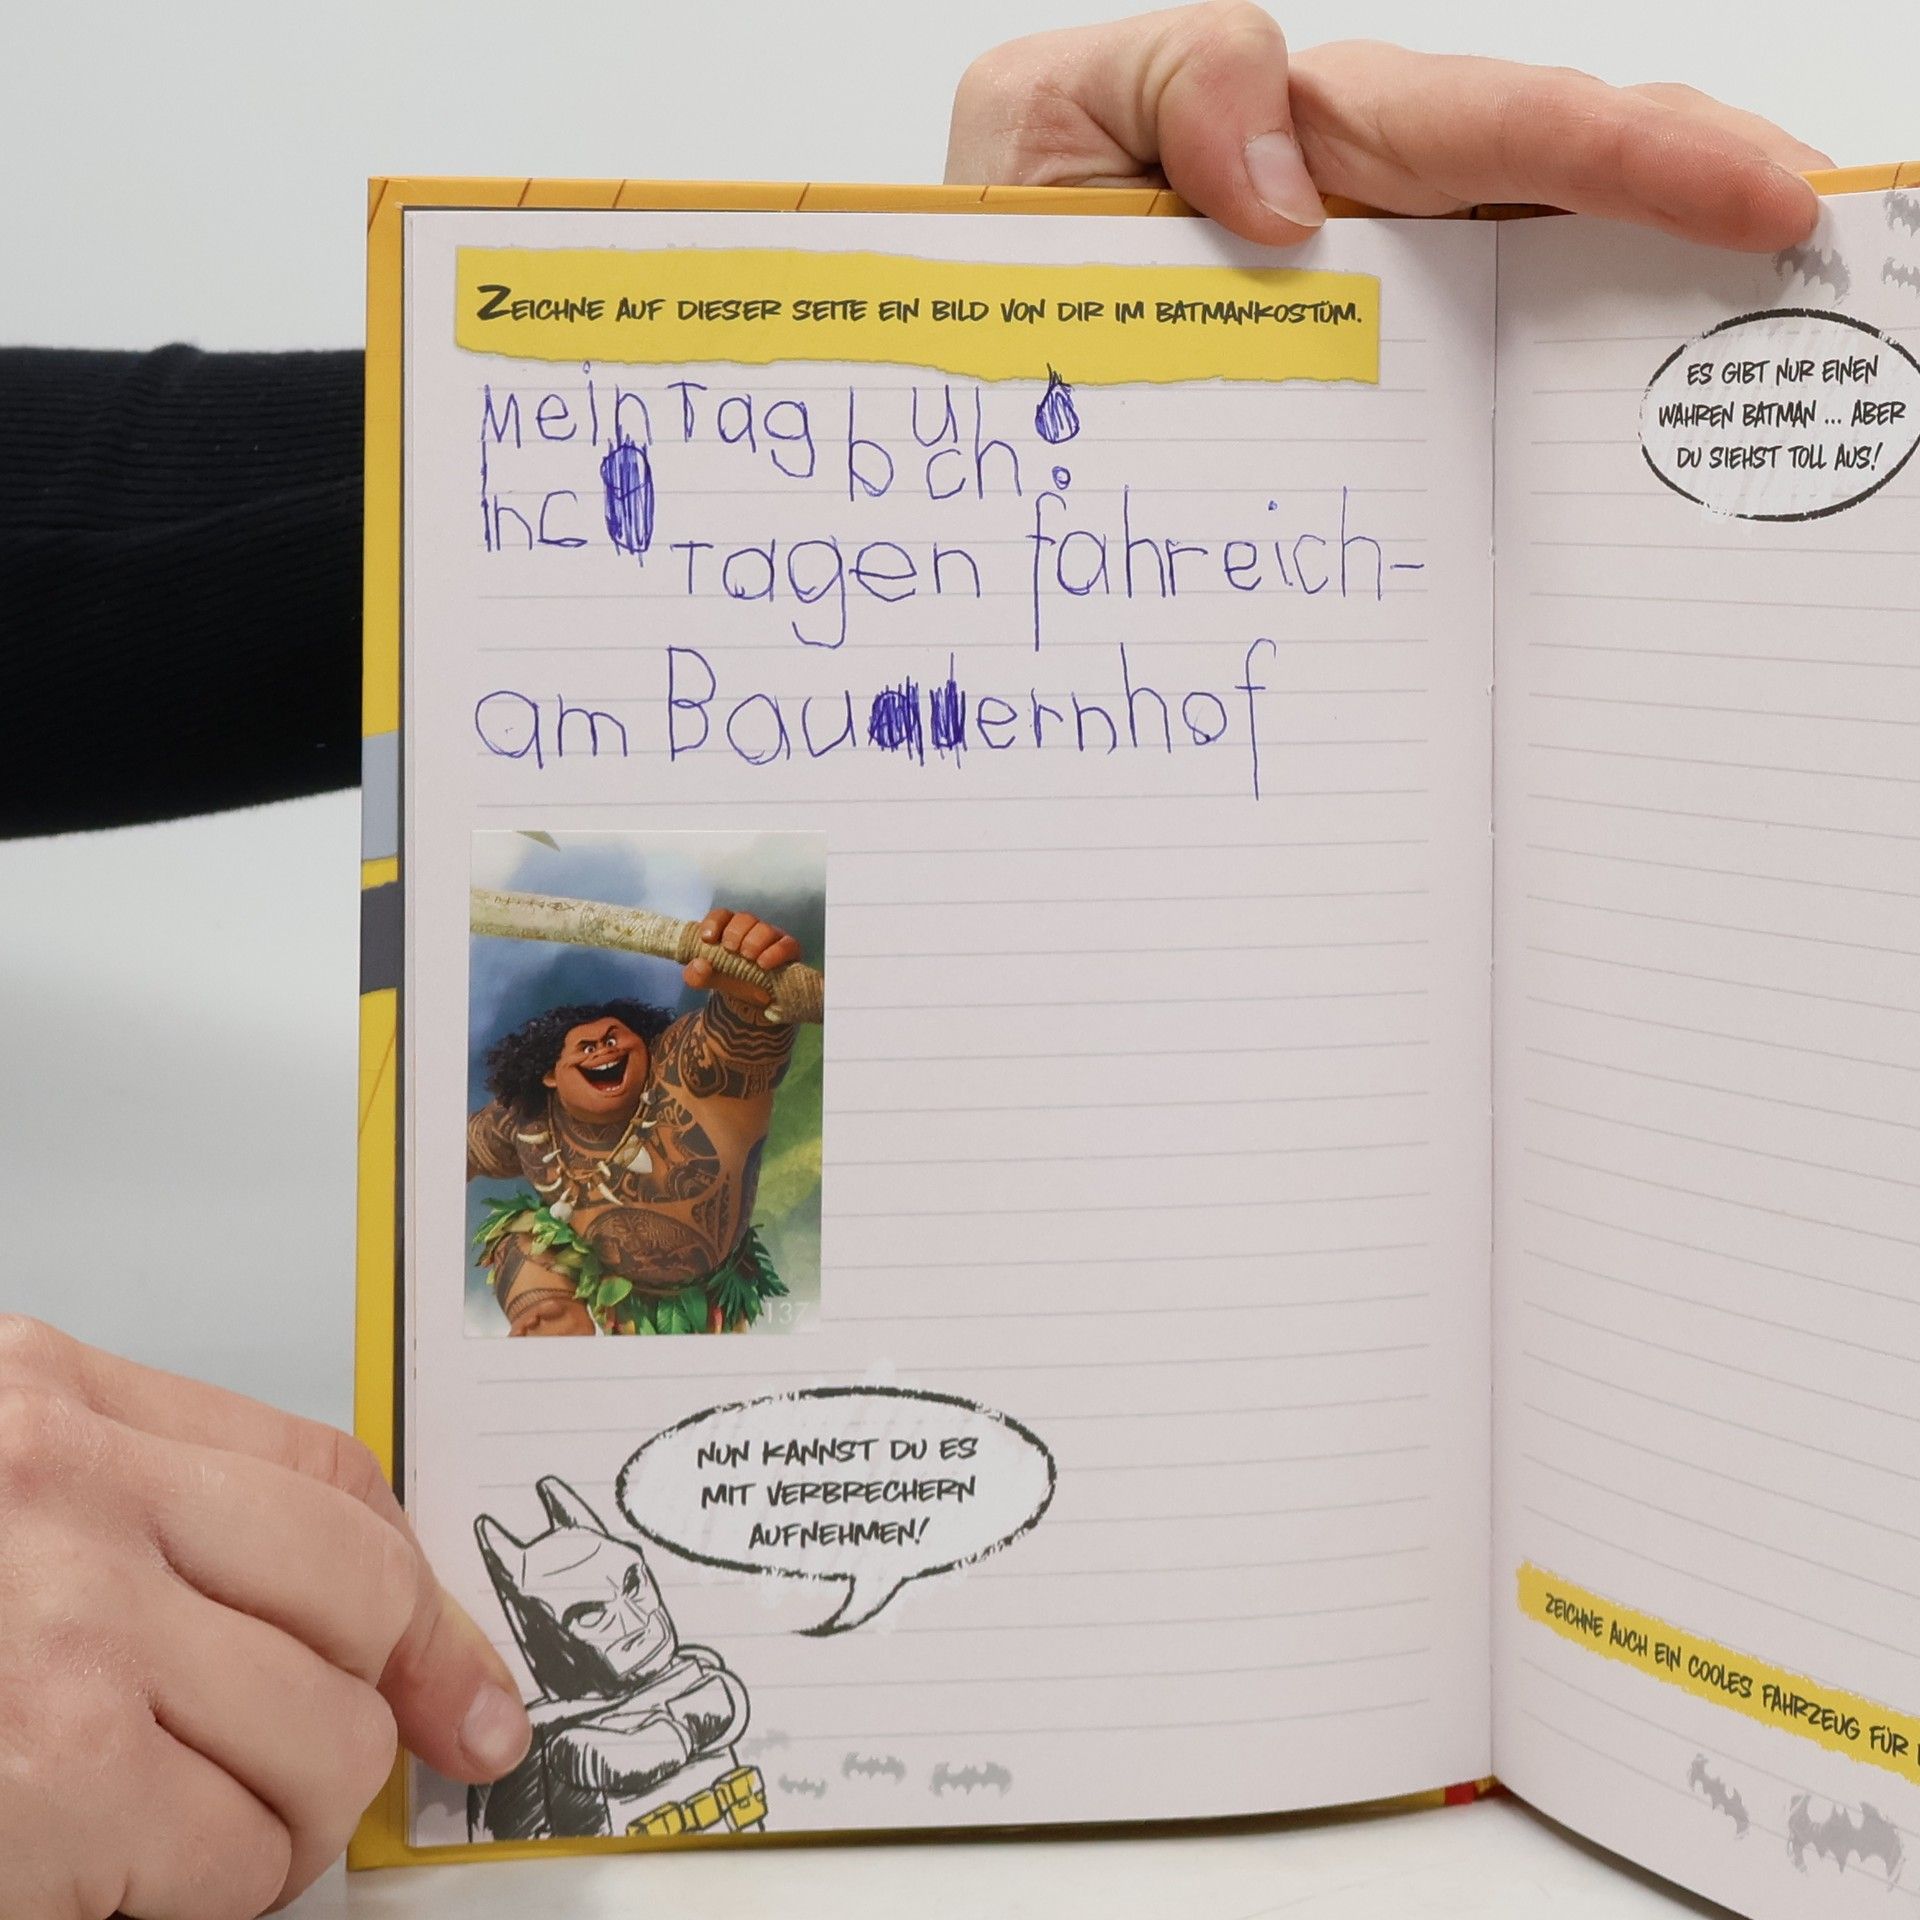 ZEICHNE AUF DIESER SEITE EIN BILD VON DIR IM BATMANKOSTÜM.
Mein Tag buch!
In 6
Tagen fahreich-
am Bauernhof
137
NUN KANNST DU ES
MIT VERBRECHERN
AUFNEHMEN!
ES GIBT NUR EINEN
WAHREN BATMAN ... ABER
DU SIEHST TOLL AUS!
ZEICHNE AUCH EIN COOLES FAHRZEUG FÜR